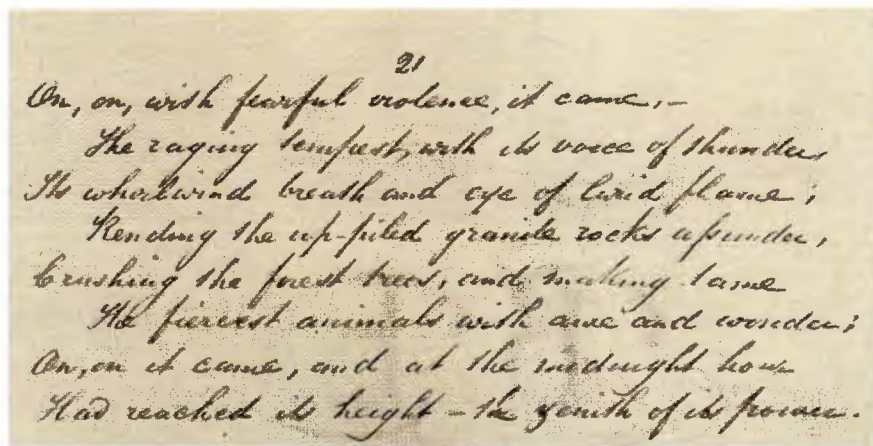 21
On, on, with fearful violence, it came,—
The raging tempest, with its voice of thunder
Its whirlwind breath and eye of lurid flame;
Rending the up-piled granite rocks asunder,
Crushing the forest trees, and making tame
The fiercest animals with awe and wonder;
On, on it came, and at the midnight hour
Had reached its height – the zenith of its power.